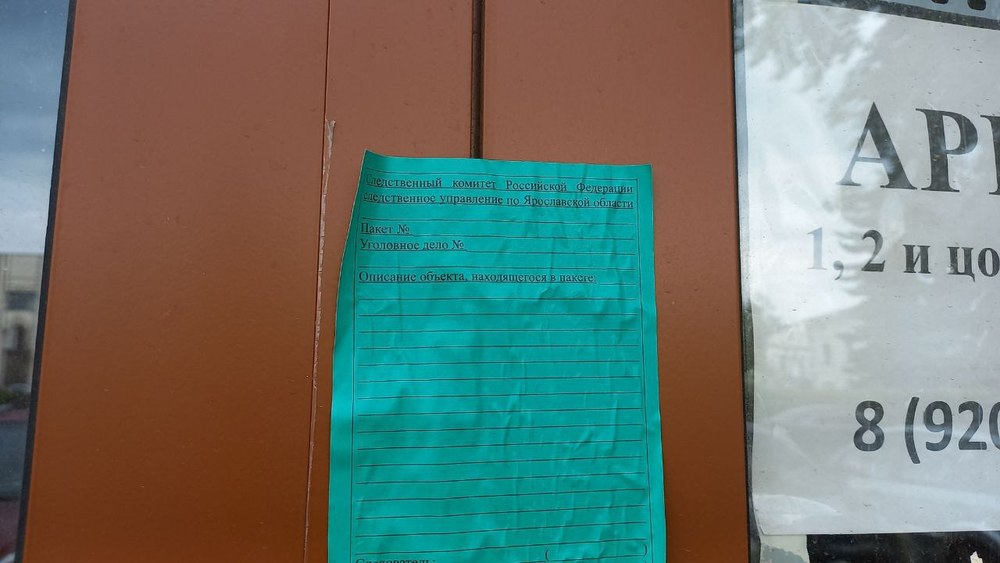 Следственный комитет Российской Федерации
следственное управление по Ярославской области
Пакет №
Уголовное дело №
Описание объекта, находящегося в пакете,
Следователь: ( )
АР
1, 2 и цо
8 (920